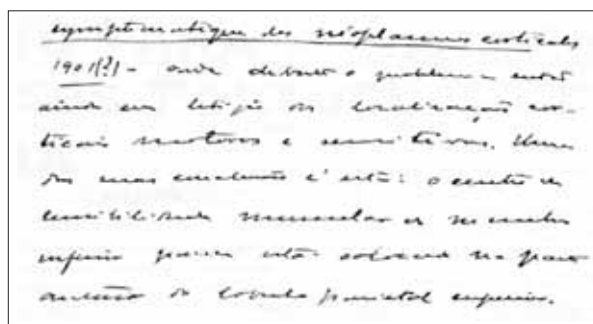 symptomatique des néoplasmes corticales
1901(?) - onde debate o problema então
ainda em litigio das localisações cor-
ticais motoras e sensitivas. Uma
das suas conclusões é esta: o centro da
sensibilidade muscular do membro
inferior parece estar colocado na parte
do lobulo parietal superior.